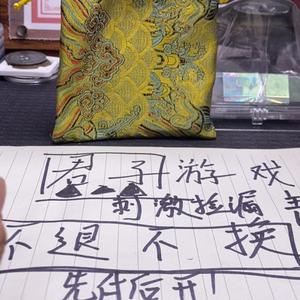 君子游戏
刺激捡漏
不退不换
先付后开!